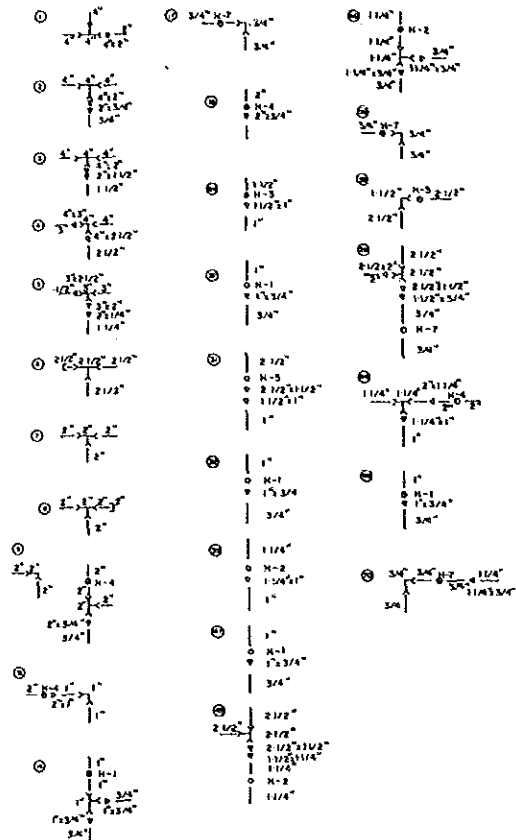 1
4"
4" 2"
4"x2"
2
4" 4" 4"
4"x2"
2"x3/4"
3/4"
3
4" 4" 4"
4"x2"
2"x1-1/2"
1-1/2"
4
4"x3"
3" 4"
4"x2-1/2"
2-1/2"
5
3"x2-1/2"
3" 3"
3"x2"
2"x1-1/4"
1-1/4"
2-1/2" 2-1/2" 2-1/2"
2-1/2"
7
2" 2" 2"
2"
2" 2" 2" 2"
2"
2" 2"
2"
2"
H-4
2"
2" 2"
2"x3/4"
3/4"
2" H-4 1" 1"
2"x1"
1"
1"
H-1
1"
1" 3/4"
1"x3/4"
1"x3/4"
3/4"
3/4" H-7 3/4"
3/4"
2"
H-4
2"x3/4"
3/4"
1-1/2"
H-3
1-1/2"x1"
1"
1"
H-1
1"x3/4"
3/4"
2-1/2"
H-5
2-1/2"x1-1/2"
1-1/2"x1"
1"
1"
H-1
1"x3/4
3/4"
1-1/4"
H-2
1-1/4"x1"
1"
47
1"
H-1
1"x3/4"
3/4"
2-1/2"
2-1/2" 2-1/2"
2-1/2"x1-1/2"
1-1/2"x1-1/4"
1-1/4"
H-2
1-1/4"
1-1/4"
H-2
1-1/4"
1-1/4" 3/4"
1-1/4"x3/4" 1-1/4"x3/4"
3/4"
3/4" H-7 3/4"
3/4"
1-1/2" H-5 2-1/2"
2-1/2"
2-1/2"
2-1/2"x2" 2-1/2"
2"
2-1/2"x1-1/2"
1-1/2"x3/4"
3/4"
H-7
3/4"
1-1/4" 1-1/4" 2"x1-1/4" H-4
2" 2"
1-1/4"x1"
1"
1"
H-1
1"x3/4"
3/4"
3/4" 3/4" H-7 1-1/4"
3/4" 1-1/4"x3/4"
3/4